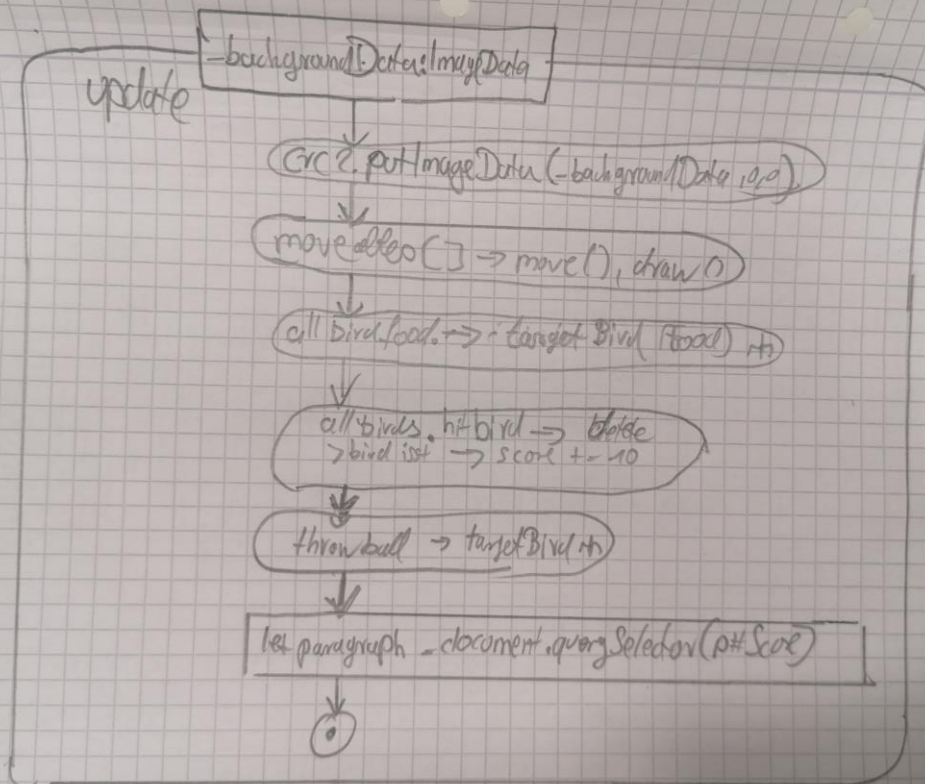 _backgroundData:ImageData
update
crc2.putImageData(_backgroundData,0,0)
[] → move(), draw()
all birdfood. → targetBird (food)
all birds. hitbird → delete
>bird isst → score +- 10
throwball → targetBird
let paragraph = document.querySelector(p#Score)